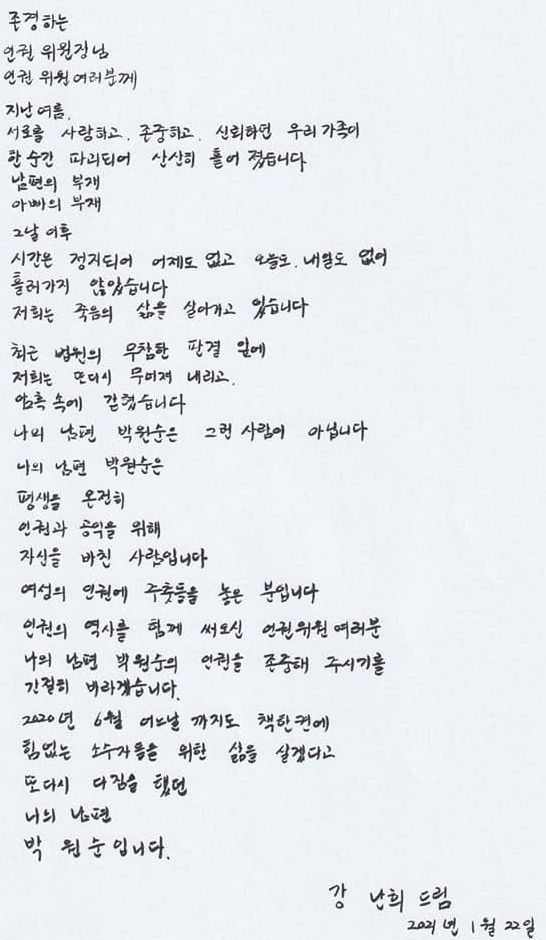 존경하는
인권 위원장님
인권 위원 여러분께
지난 여름.
서로를 사랑하고. 존중하고. 신뢰하던 우리 가족이
한 순간 파괴되어 산산히 흩어 졌습니다
남편의 부재
아빠의 부재
그날 이후
시간은 정지되어 어제도 없고 오늘도. 내일도 없이
흘러가지 않았습니다
저희는 죽음의 삶을 살아가고 있습니다
최근 법원의 무참한 판결 앞에
저희는 또다시 무너져 내리고.
암흑 속에 갇혔습니다
나의 남편 박원순은 그런 사람이 아닙니다
나의 남편 박원순은
평생을 온전히
인권과 공익을 위해
자신을 바친 사람입니다
여성의 인권에 주춧돌을 놓은 분입니다
인권의 역사를 함께 써오신 인권위원 여러분
나의 남편 박원순의 인권을 존중해 주시기를
간절히 바라겠습니다.
2020년 6월 어느날 까지도 책한권에
힘없는 소수자들을 위한 삶을 살겠다고
또다시 다짐을 했던
나의 남편
박 원 순 입니다.
강 난희 드림
2021년 1월 22일